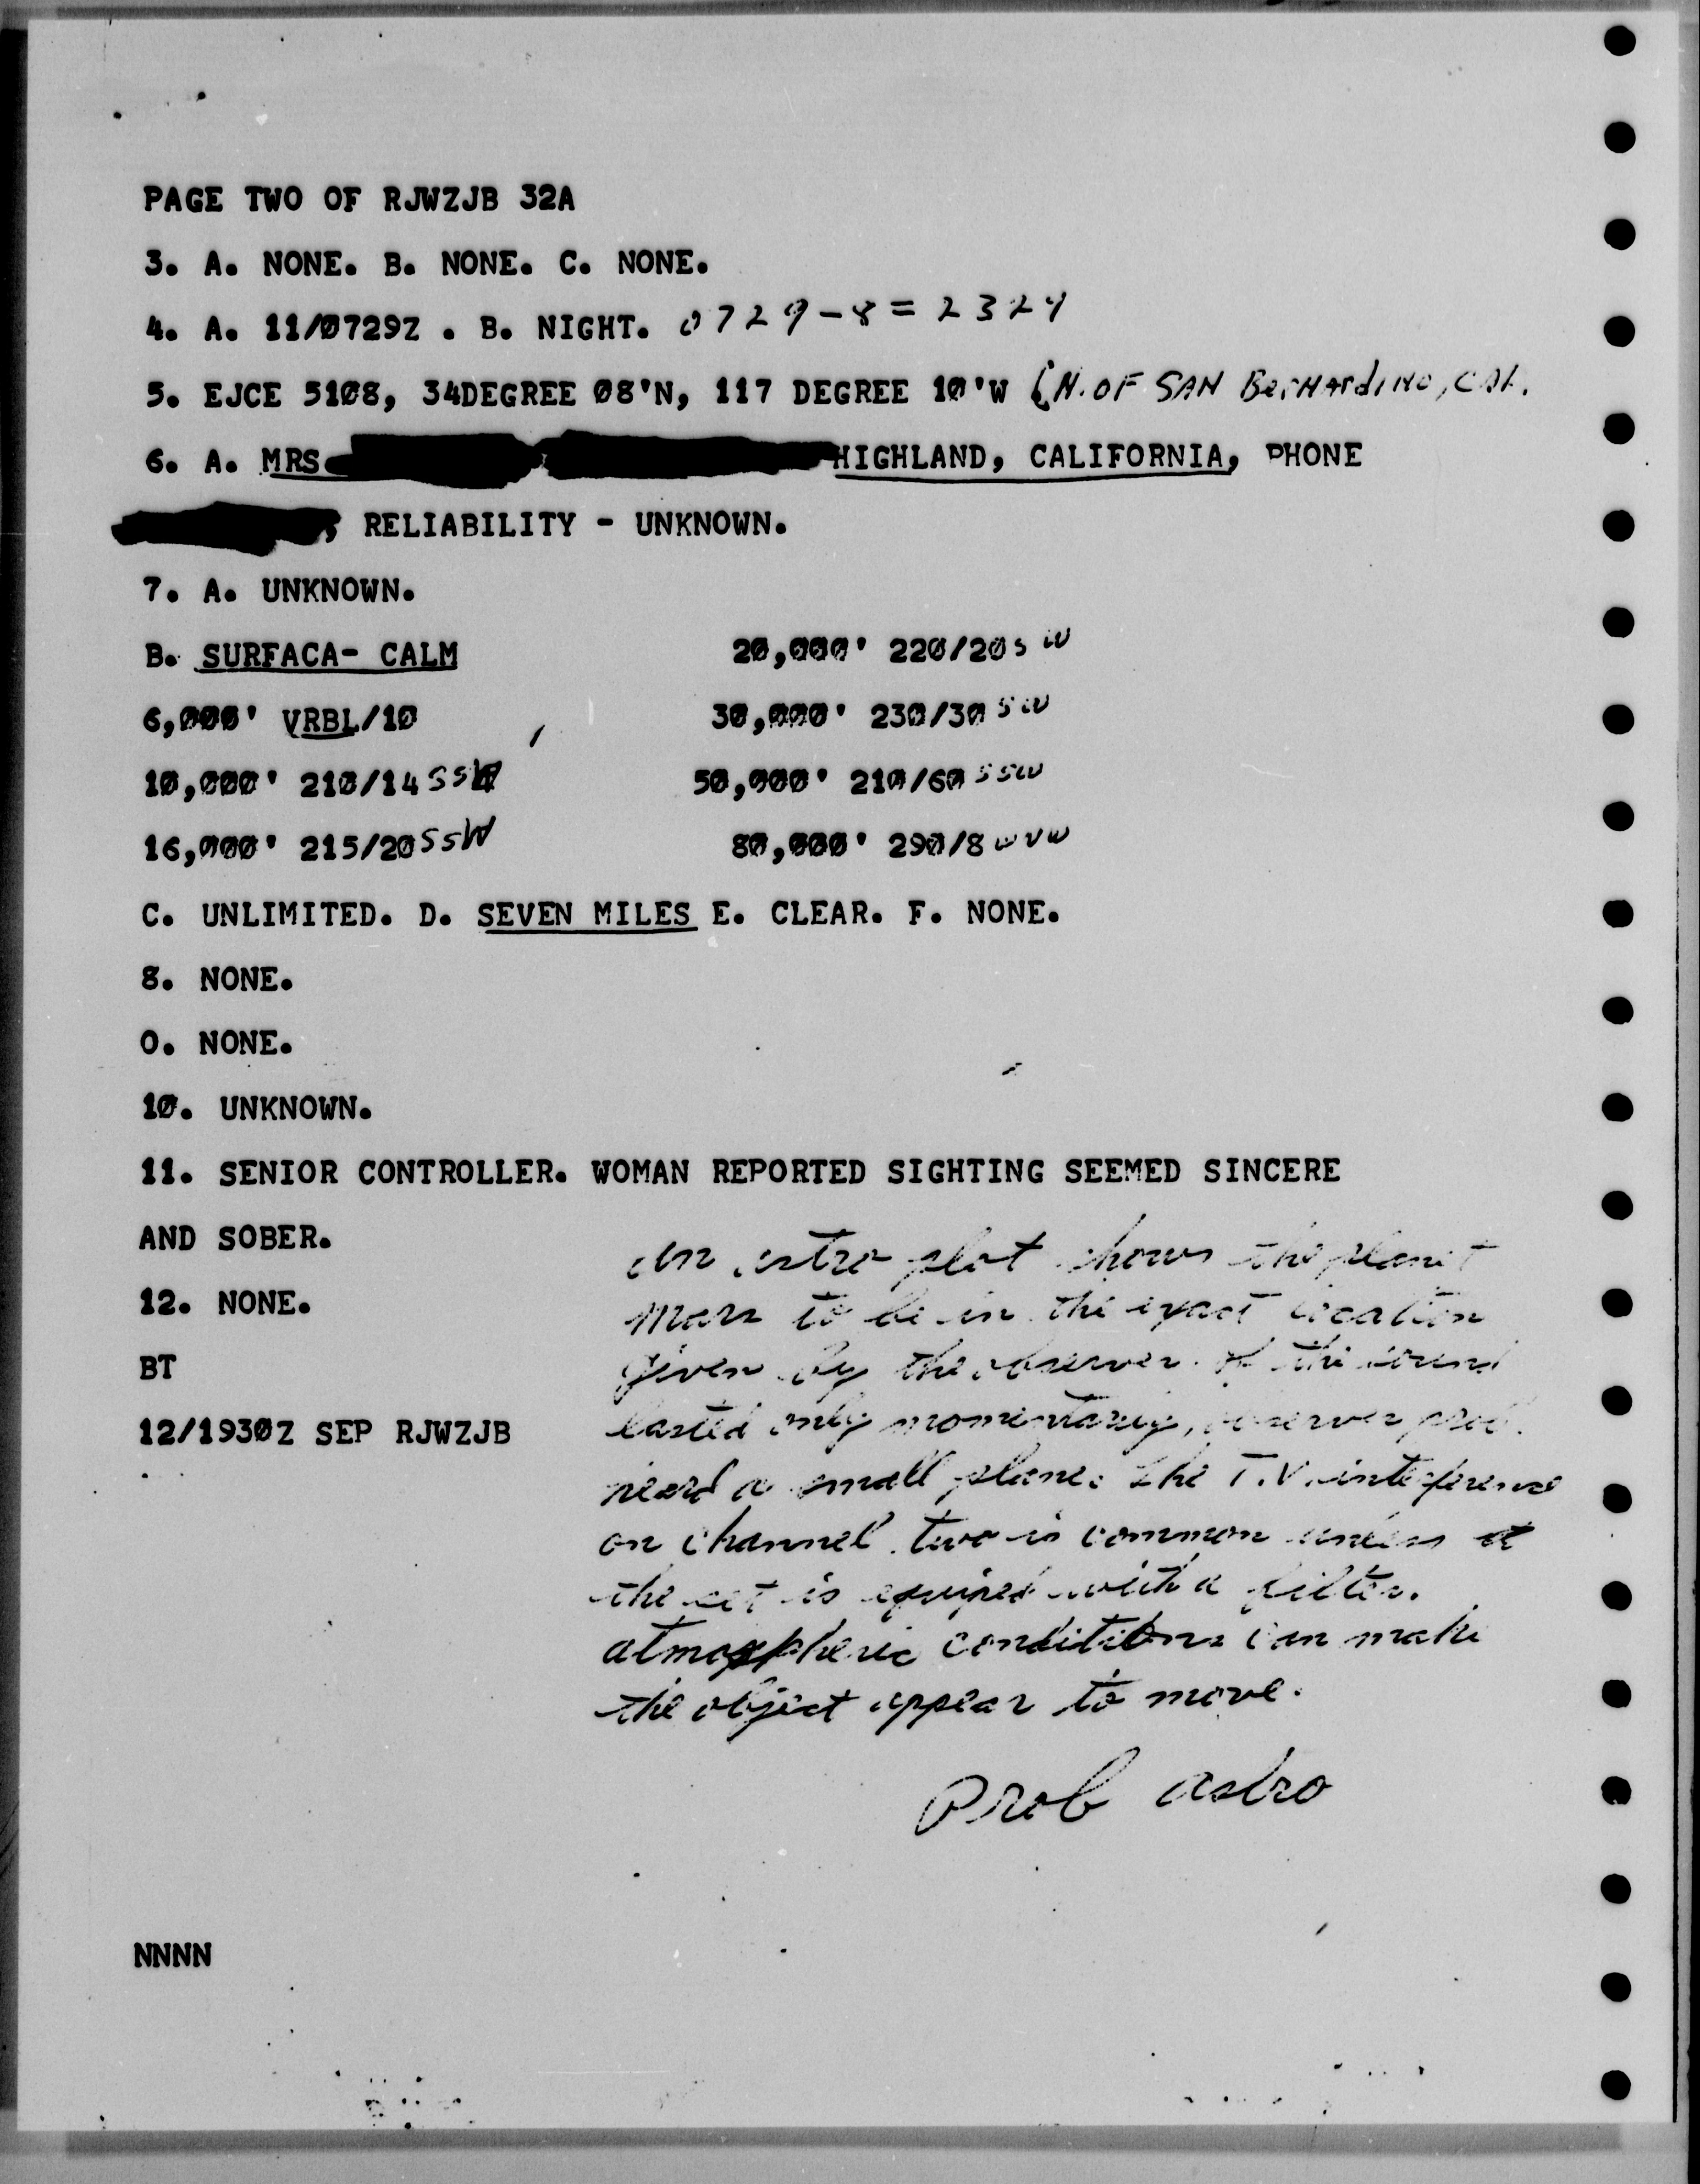 PAGE TWO OF RJWZJB 32A
3. A. NONE. B. NONE. C. NONE.
4. A. 11/0729Z . B. NIGHT. 0729-8=2329
5. EJCE 5108, 34DEGREE 08'N, 117 DEGREE 10'W (N. OF SAN BerNArdiNo, CAL.
6. A. MRS HIGHLAND, CALIFORNIA, PHONE
, RELIABILITY - UNKNOWN.
7. A. UNKNOWN.
B. SURFACA- CALM 20,000' 220/20 SW
6,000' VRBL/10 30,000' 230/30 SW
10,000' 210/14 SSW 50,000' 210/60 SSW
16,000' 215/20 SSW 80,000' 290/8 WNW
C. UNLIMITED. D. SEVEN MILES E. CLEAR. F. NONE.
8. NONE.
O. NONE.
10. UNKNOWN.
11. SENIOR CONTROLLER. WOMAN REPORTED SIGHTING SEEMED SINCERE
AND SOBER.
An astro plot shows the planet
12. NONE.
Mars to be in the exact location
BT
given by the observer. If the sound
12/1930Z SEP RJWZJB
lasted only momentarily, observer prob.
heard a small plane. The T.V. inteference
on channel two is common unless
the set is equiped with a filter.
atmospheric conditions can make
the object appear to move.
Prob astro
NNNN